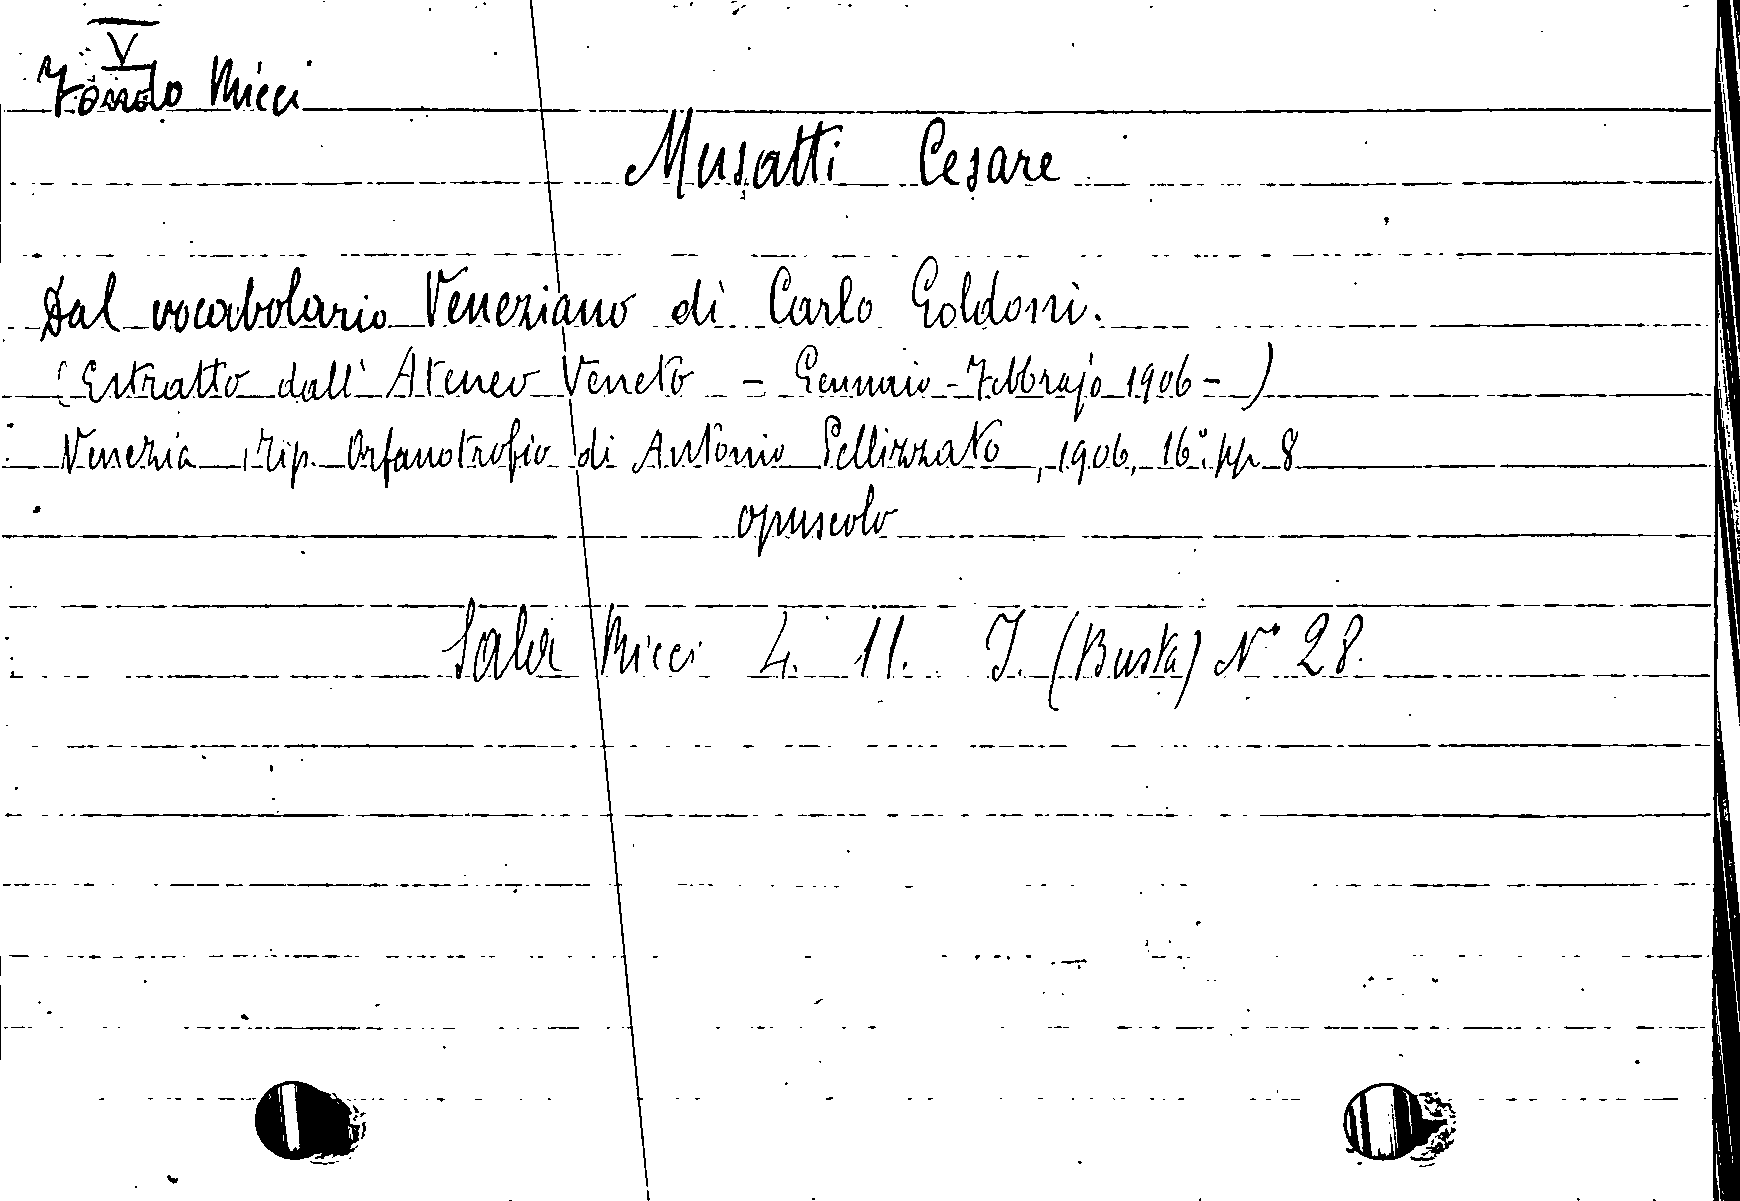 V
Fondo Ricci
Musatti Cesare
Dal vocabolario Veneziano di Carlo Goldoni.
(Estratto dall' Ateneo Veneto - Gennaio - Febbrajo 1906 - )
Venezia, Tip. Orfanotrofio di Antonio Pellizzato, 1906, 16° pp 8
opuscolo
Sala Ricci 4. 11. I. (Busta) N° 28.